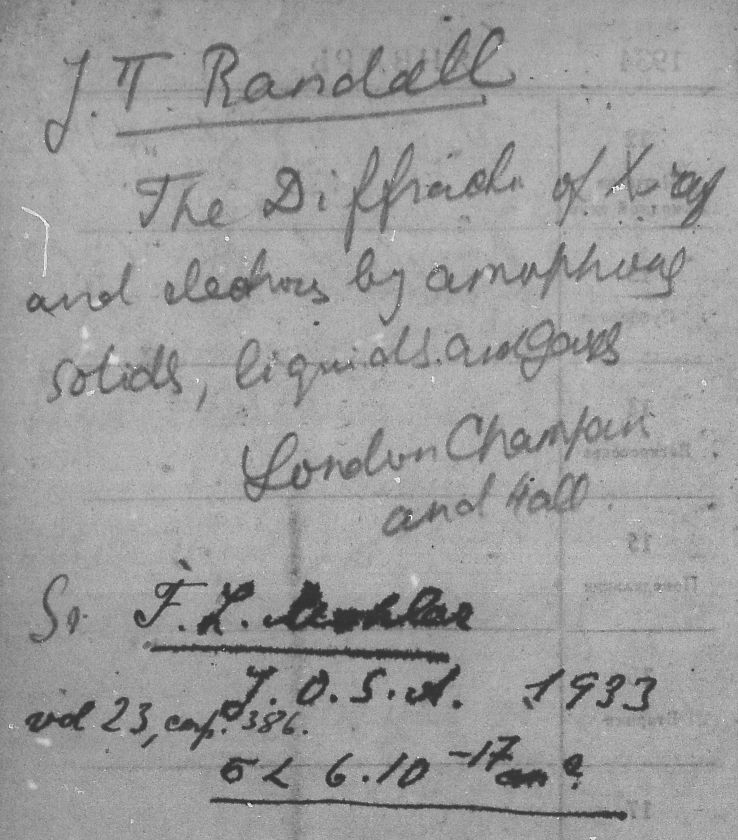 J. T. Randall
The Diffracti. of X-ray
and electrons by amorphous
solids, liquids and gases
London Chapman
and Hall
F. L. Mohler
J. O. S. A. 1933
vol 23, стр. 386.
σ < 6.10 -17 cm 2